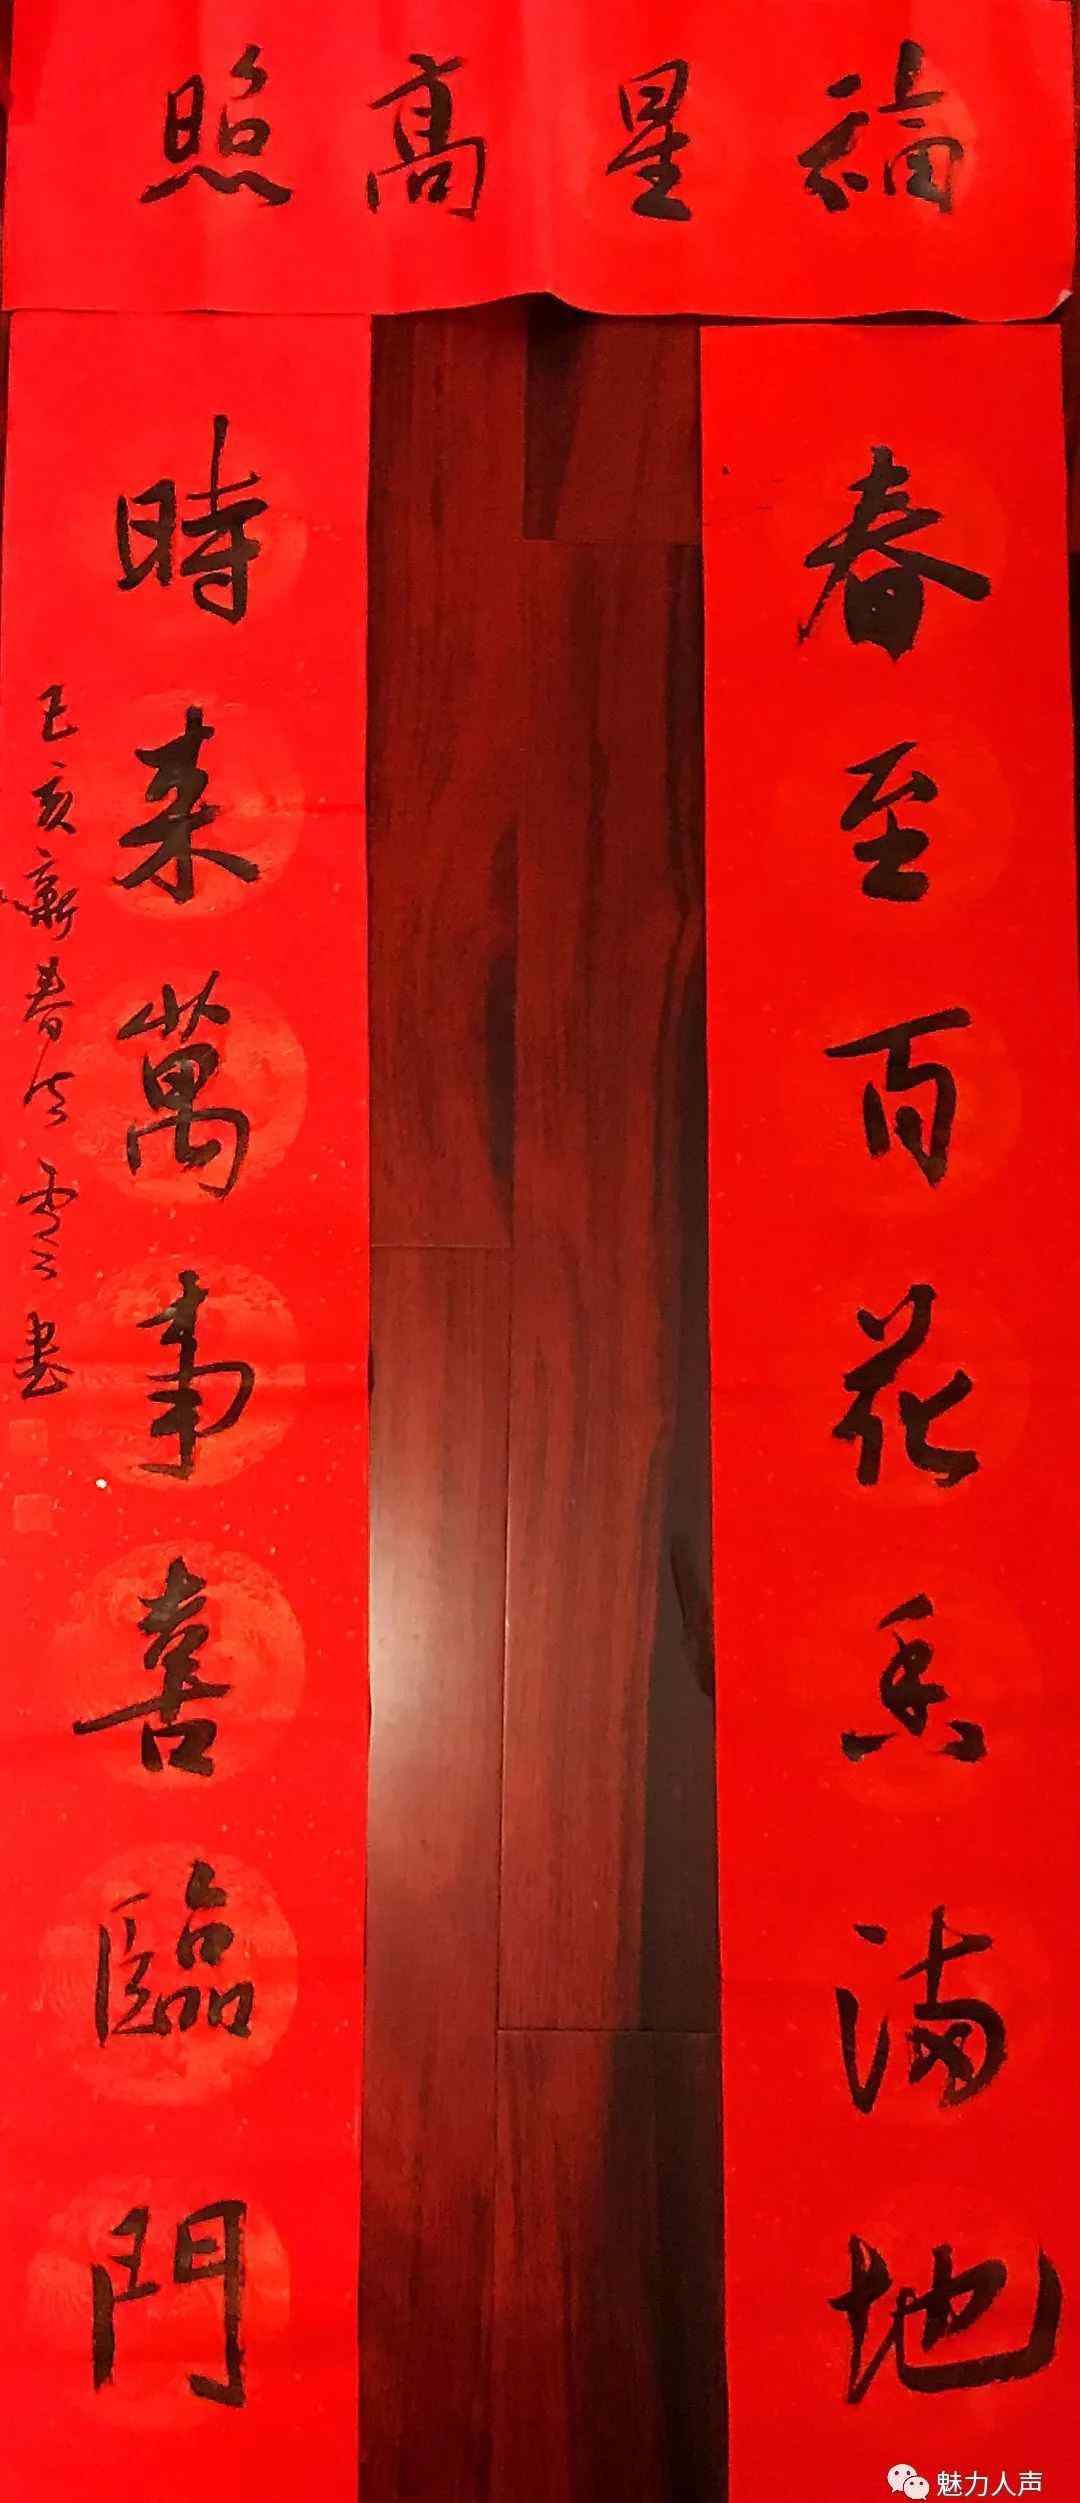 福星高照
春至百花香满地
時来萬事喜臨門
己亥新春 書
魅力人声